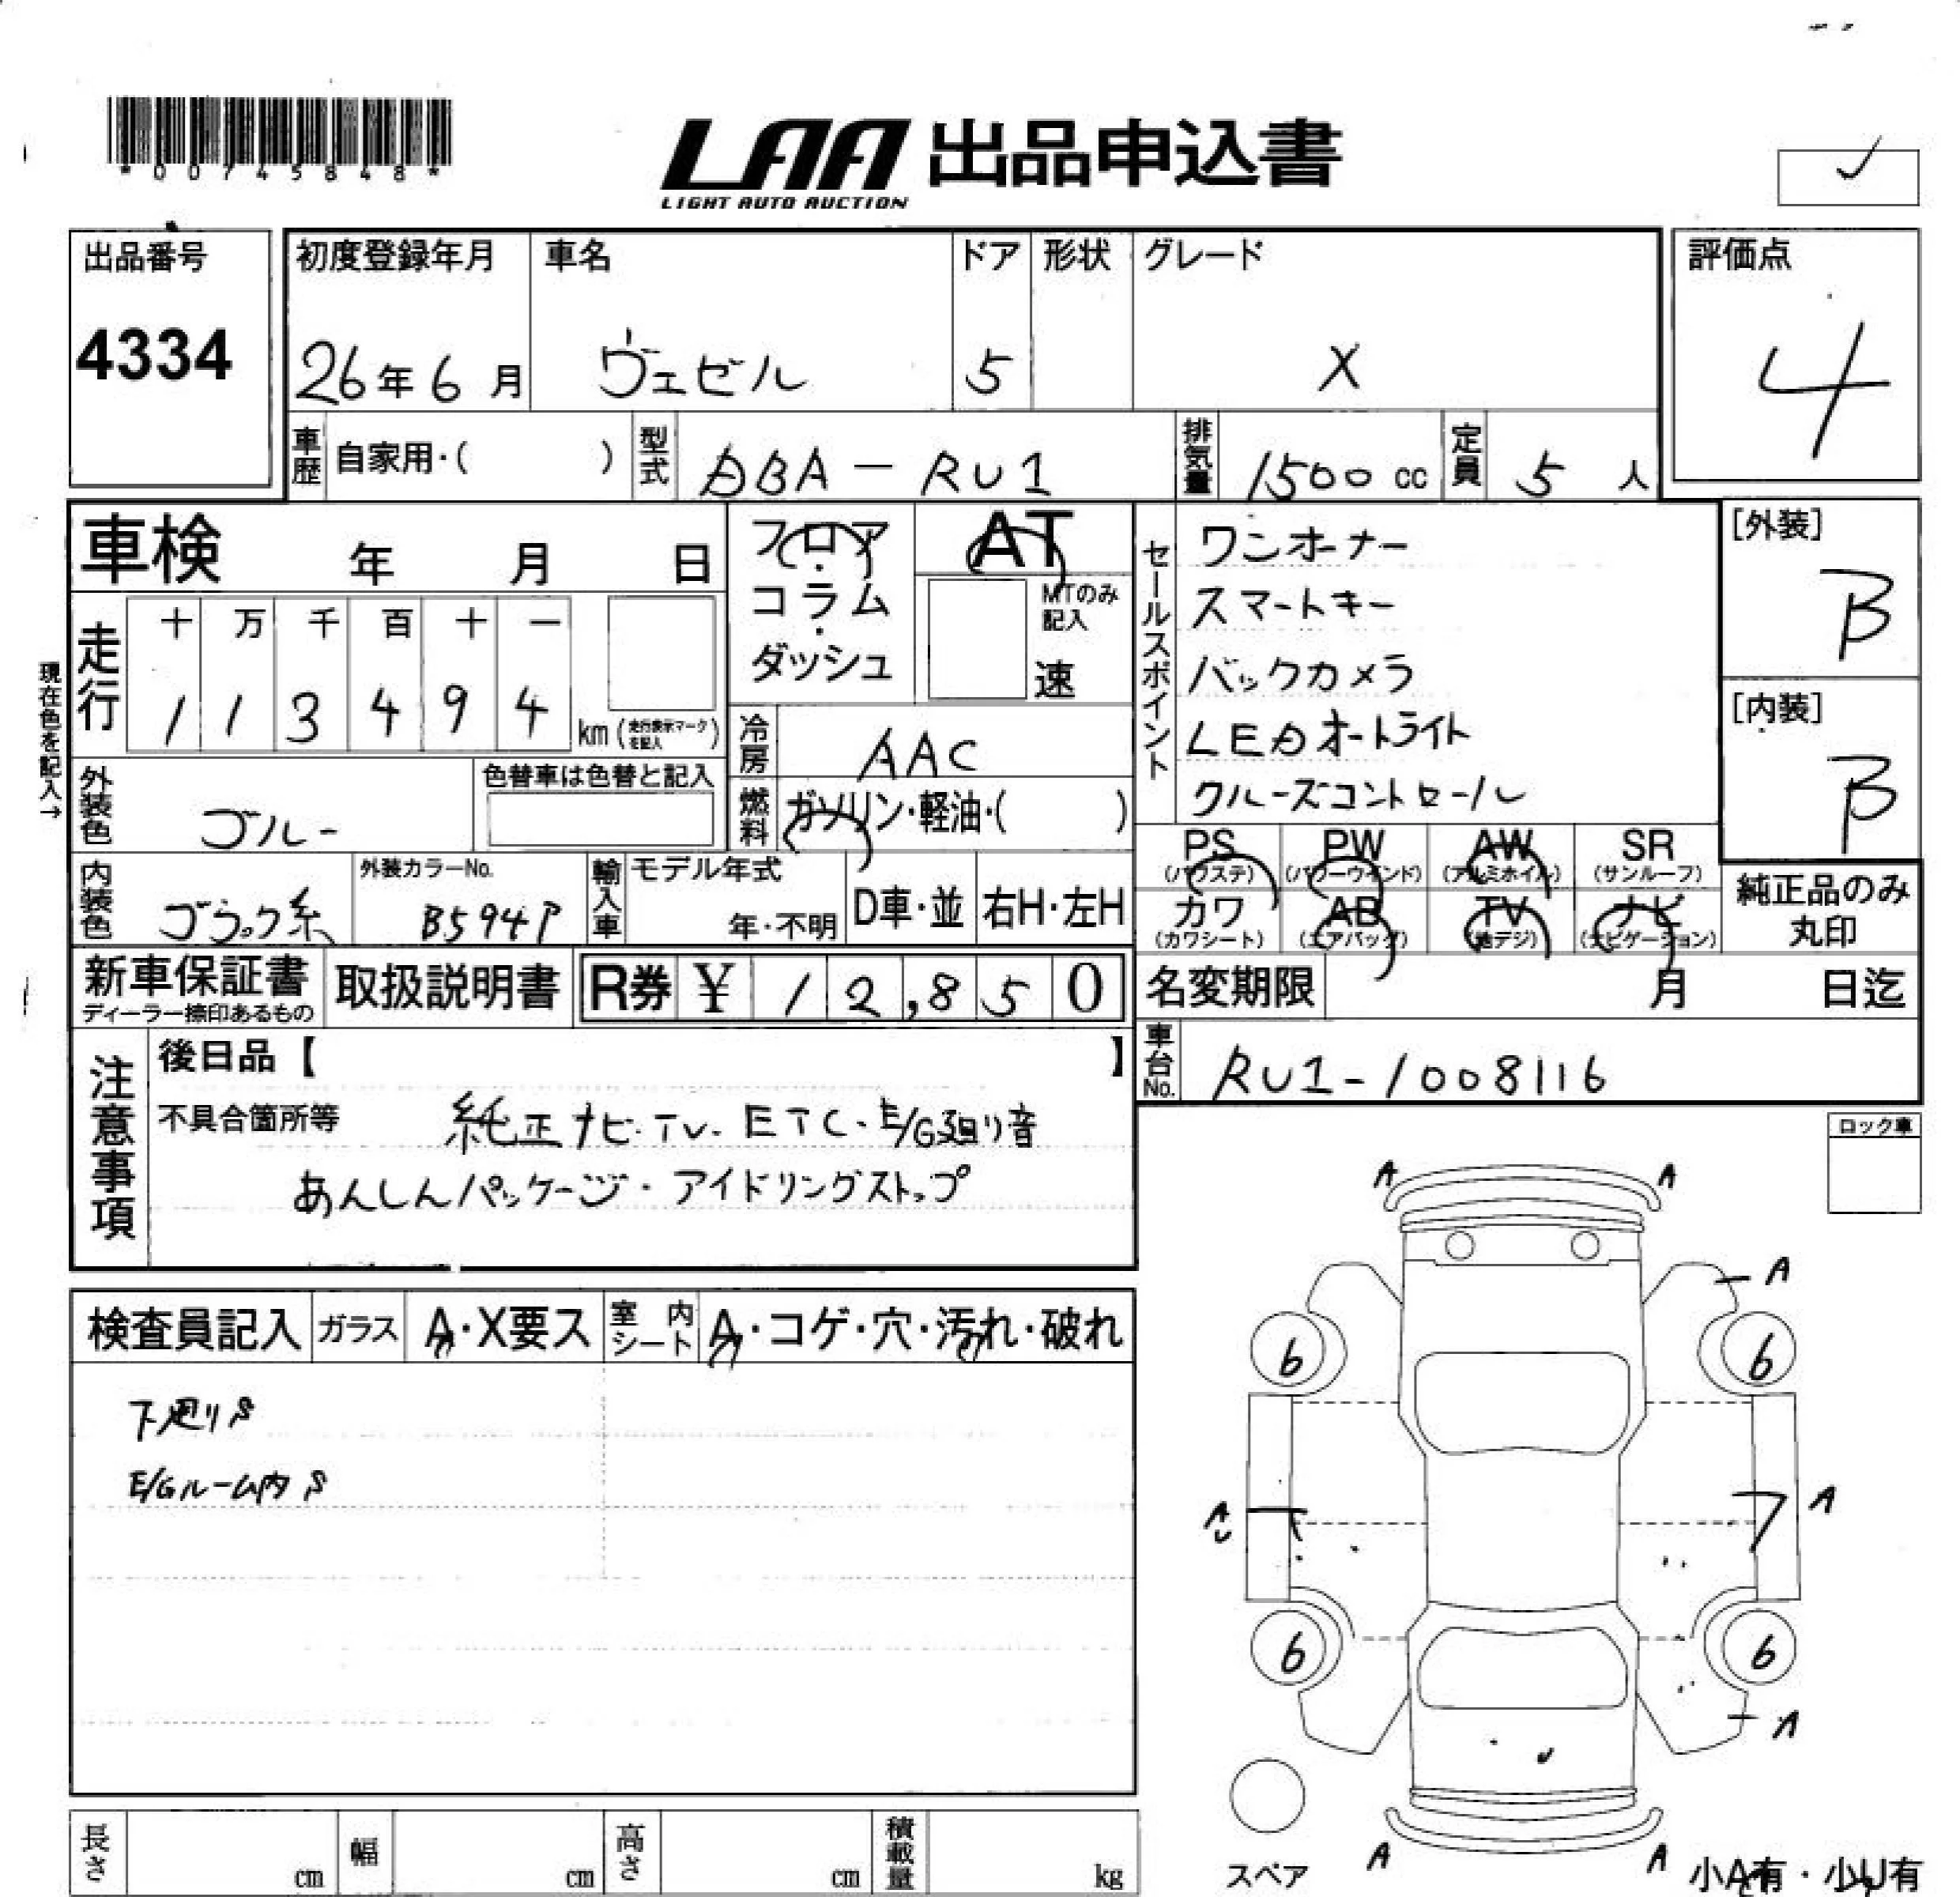 *00745848*
LAA 出品申込書
LIGHT AUTO AUCTION
出品番号
4334
初度登録年月
26年6月
車名
ヴェゼル
ドア
5
形状
グレード
X
評価点
4
車歴
自家用・( )
型式
DBA-RU1
排気量
1500 cc
定員
5 人
車検 年 月 日
フロア・コラム・ダッシュ
AT
MTのみ記入
速
セールスポイント
ワンオーナー
スマートキー
バックカメラ
LEDオートライト
クルーズコントロール
[外装]
B
[内装]
B
現在色を記入→
走行
十 万 千 百 十 一
1 1 3 4 9 4 km (走行表示マークを記入)
冷房
AAC
外装色
ブルー
色替車は色替と記入
燃料
ガソリン・軽油・( )
PS (パワステ)
PW (パワーウインド)
AW (アルミホイル)
SR (サンルーフ)
カワ (カワシート)
AB (エアバッグ)
TV (地デジ)
ナビ (ナビゲーション)
純正品のみ丸印
内装色
ブラック系
外装カラーNo.
B594P
輸入車
モデル年式
年・不明
D車・並
右H・左H
新車保証書
ディーラー捺印あるもの
取扱説明書
R券 ¥ 12,850
名変期限 月 日迄
車台No.
RU1-1008116
注意事項
後日品【 】
不具合箇所等
純正ナビ・TV・ETC・E/G廻り音
あんしんパッケージ・アイドリングストップ
ロック車
検査員記入
ガラス
A・X要ス
室内シート
A・コゲ・穴・汚れ・破れ
下廻りS
E/Gルーム内S
A A
A
6 6
A A
6 6
A
A A
スペア
小A有・小U有
長さ cm
幅 cm
高さ cm
積載量 kg